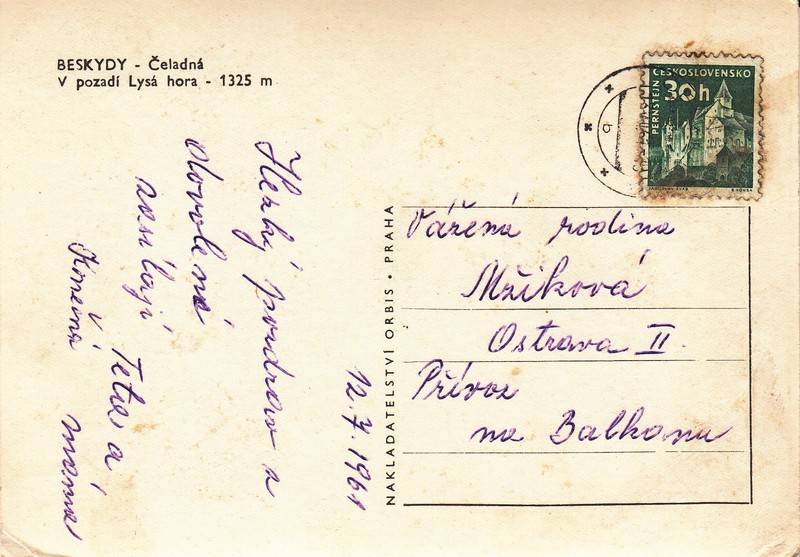 BESKYDY - Čeladná
V pozadí Lysá hora - 1325 m
ČESKOSLOVENSKO
30h
PERNŠTEJN
Hezký pozdrav z
dovolené
zasílají Teta a
máma
12.7.1961
NAKLADATELSTVÍ ORBIS • PRAHA
Vážená rodina
Mžiková
Ostrava II
Přívoz
na Balkanu